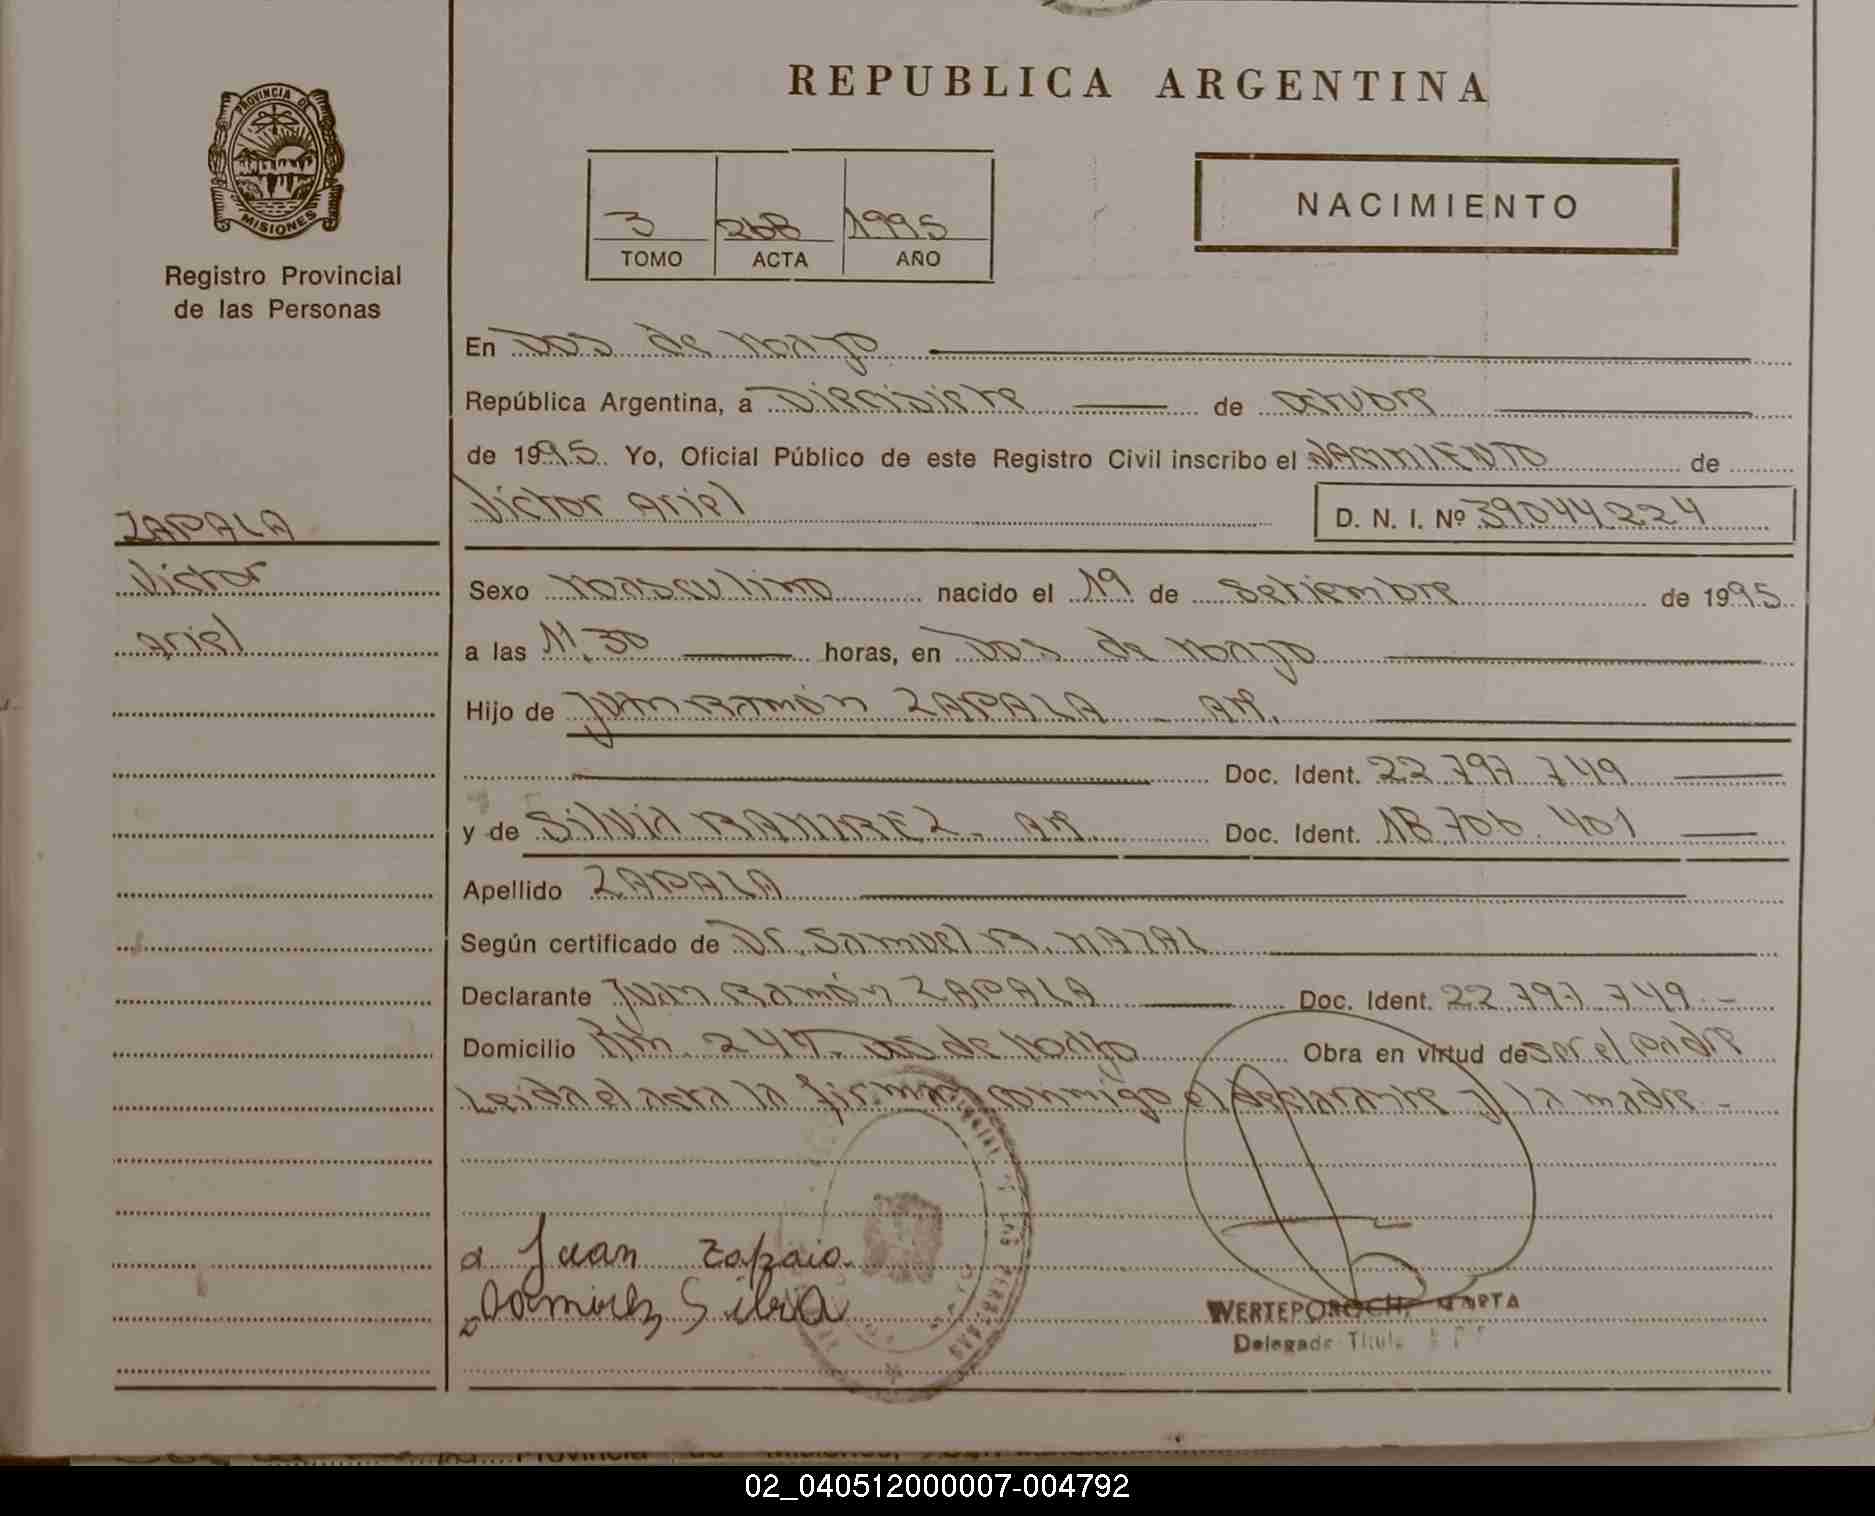 REPUBLICA ARGENTINA
PROVINCIA DE
MISIONES
Registro Provincial
de las Personas
3 268 1995
TOMO ACTA AÑO
NACIMIENTO
En Dos de Mayo
República Argentina, a Diecisiete de Octubre
de 1995. Yo, Oficial Público de este Registro Civil inscribo el NACIMIENTO de
Victor Ariel D. N. I. Nº 39044224
ZAPALA
Victor
Ariel
Sexo Masculino nacido el 19 de Setiembre de 1995.
a las 11,30 horas, en Dos de Mayo
Hijo de Juan Ramón ZAPALA - AR.
Doc. Ident. 22.797.749
y de Silvia RAMIREZ - AR. Doc. Ident. 18.706.401
Apellido ZAPALA
Según certificado de Dr. Samuel R. NATAL
Declarante Juan Ramón ZAPALA Doc. Ident. 22.797.749.-
Domicilio Km. 247. Dos de Mayo Obra en virtud de ser el padre
Leida el acta la firman conmigo el declarante y la madre -
Juan Zapala
Ramirez Silvia
WERTEPOROCH, MARTA
Delegada Titular
02_040512000007-004792